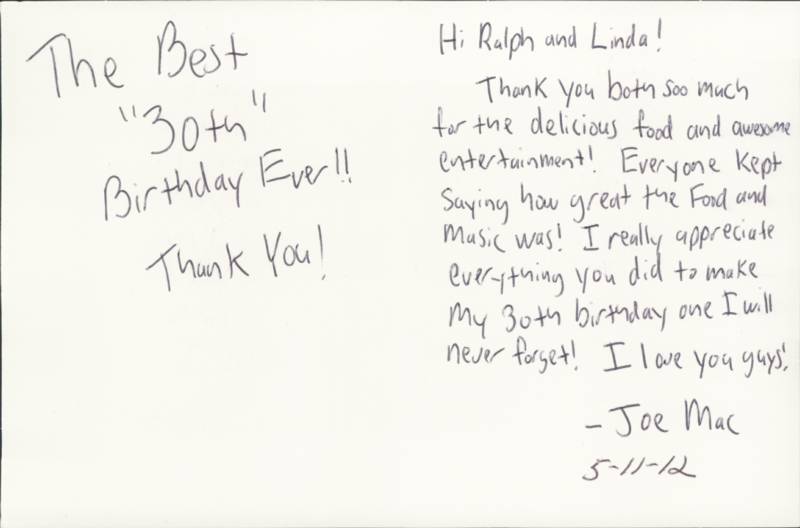 The Best
"30th"
Birthday Ever!!
Thank You!
Hi Ralph and Linda!
Thank you both soo much
for the delicious food and awesome
entertainment! Everyone kept
saying how great the Food and
music was! I really appreciate
everything you did to make
my 30th birthday one I will
never forget! I love you guys!
- Joe Mac
5-11-12